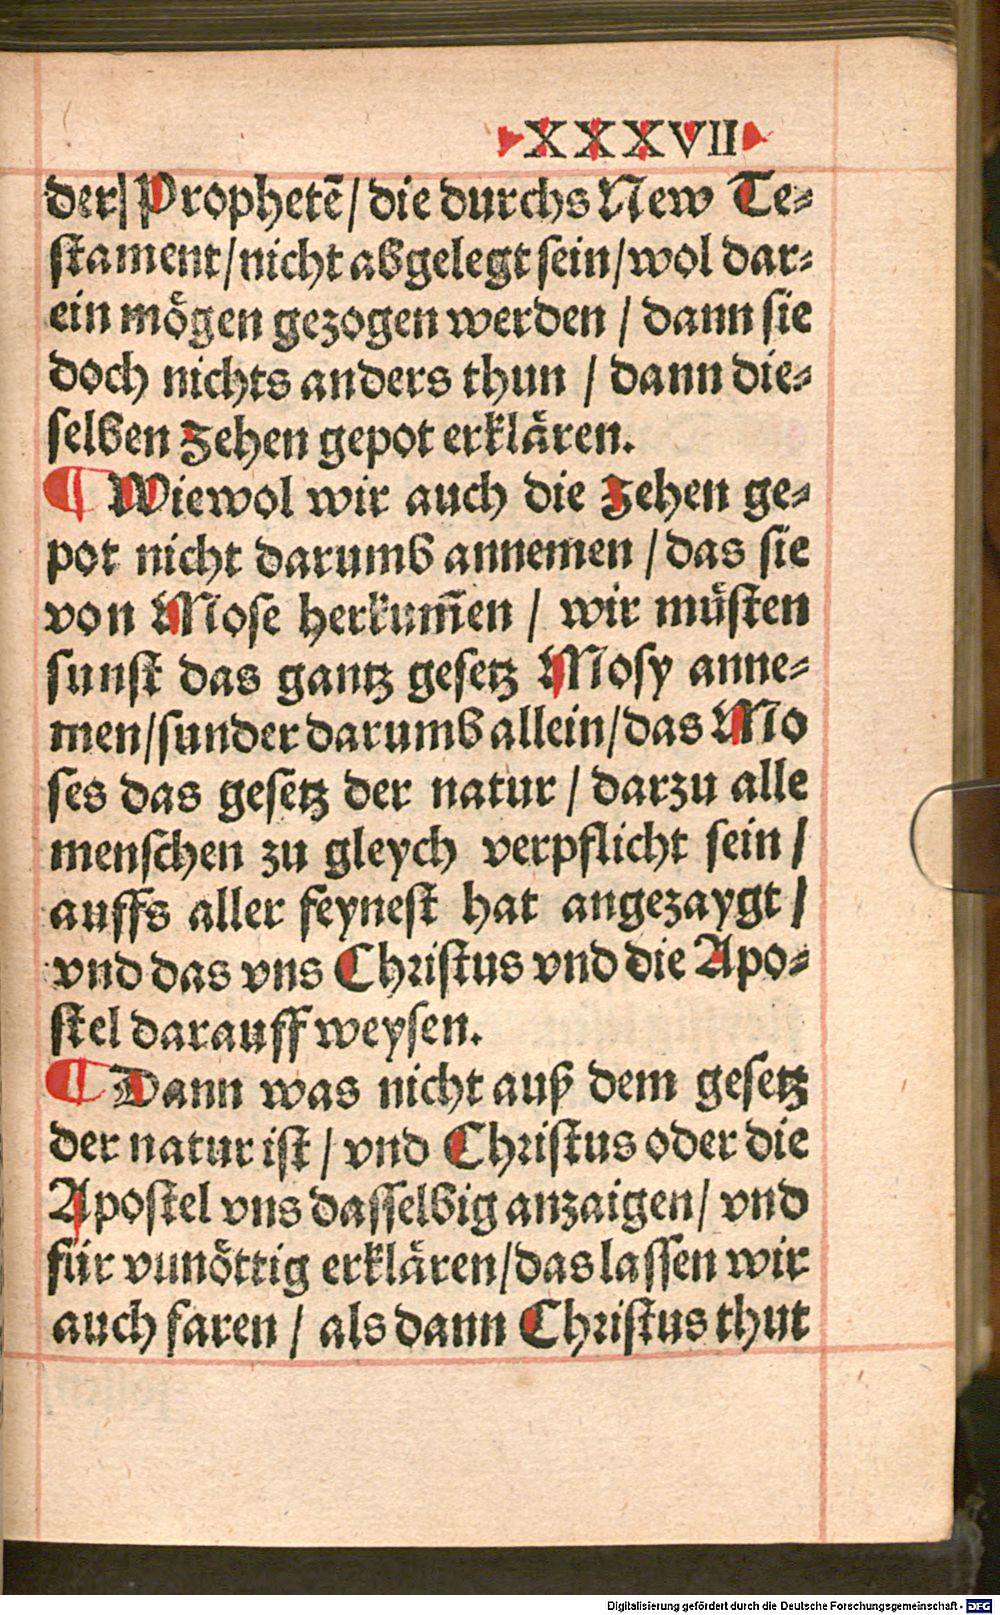 XXXVII
der/ Prophetē/ die durchs New Te⸗
ſtament/nicht abgelegt ſein/wol dar⸗
ein mögen gezogen werden / dann ſie
doch nichts anders thun / dann die⸗
ſelben Zehen gepot erklären.
¶ Wiewol wir auch die Zehen ge⸗
pot nicht darumb annemen /das ſie
von Moſe herkum̄en / wir müſten
ſunſt das gantz geſetz Moſy anne⸗
men/ſunder darumb allein/das Mo
ſes das geſetz der natur / darzu alle
menſchen zu gleych verpflicht ſein /
auffs aller feyneſt hat angezaygt /
vnd das vns Chriſtus vnd die Apo⸗
ſtel darauff weyſen.
¶ Dann was nicht auß dem geſetz
der natur iſt / vnd Chriſtus oder die
Apoſtel vns daſſelbig anzaigen/ vnd
für vunöttig erklären/das laſſen wir
auch faren / als dann Chriſtus thut
Digitalisierung gefördert durch die Deutsche Forschungsgemeinschaft - DFG